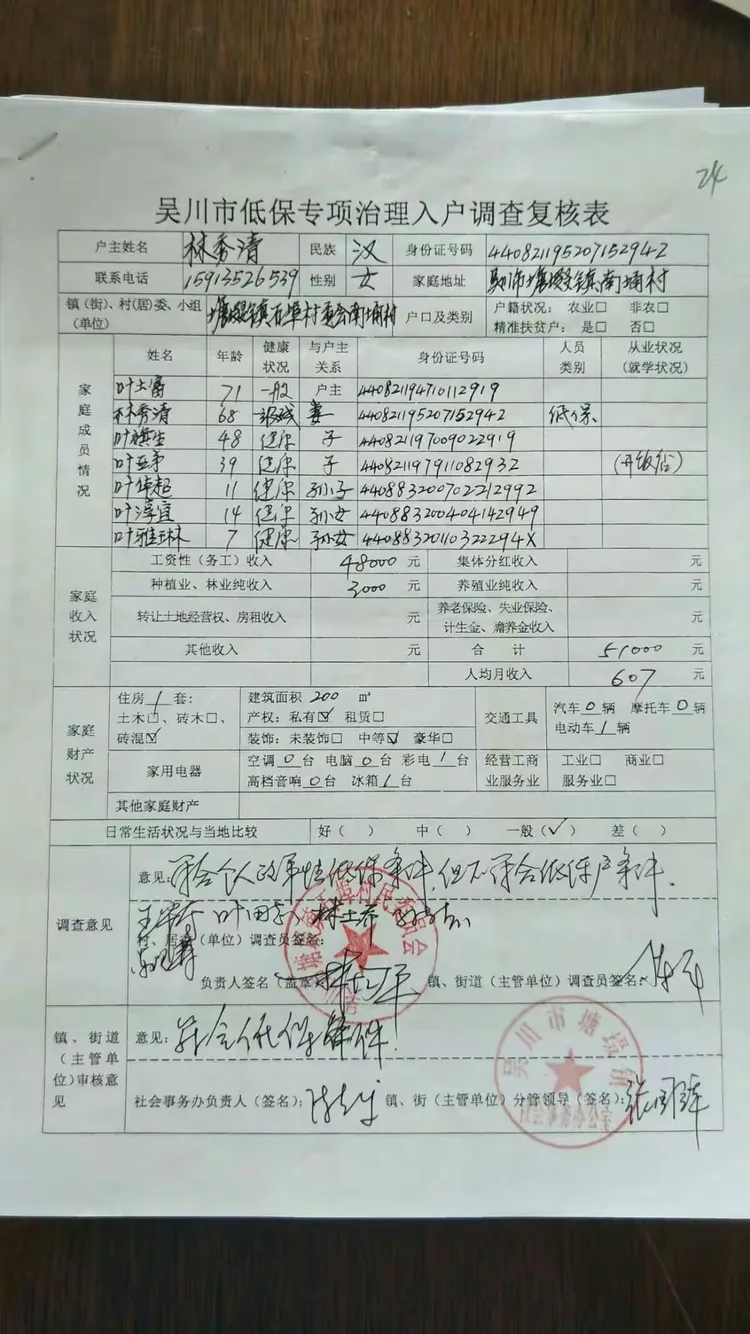 24
吴川市低保专项治理入户调查复核表
户主姓名 林秀清 民族 汉 身份证号码 440821195207152942
联系电话 15913526539 性别 女 家庭地址 镇南埇村
镇(街)、村(居)委、小组(单位) 南埇村 户口及类别 户籍状况: 农业□ 非农□
精准扶贫户: 是□ 否□
家庭成员情况
姓名 年龄 健康状况 与户主关系 身份证号码 人员类别 从业状况(就学状况)
叶土富 71 一般 户主 440821194710112919
林秀清 68 妻 440821195207152942 低保
叶 48 健康 子 440821197009022919
叶亚 39 健康 子 440821197911082932
叶华超 11 健康 孙子 440883200702212992
叶 14 健康 孙女 440883200404142949
叶雅琳 7 健康 孙女 44088320110322294X
家庭收入状况
工资性(务工)收入 48000 元 集体分红收入 元
种植业、林业纯收入 3000 元 养殖业纯收入 元
转让土地经营权、房租收入 元 养老保险、失业保险、计生金、赡养金收入 元
其他收入 元 合 计 51000 元
人均月收入 607 元
家庭财产状况
住房1套: 建筑面积 200 ㎡ 交通工具 汽车0辆 摩托车0辆
土木□、砖木□、 产权:私有☑ 租赁□ 电动车1辆
砖混☑ 装饰:未装饰□ 中等☑ 豪华□
家用电器 空调0台 电脑0台 彩电1台 经营工商业服务业 工业□ 商业□
高档音响0台 冰箱1台 服务业□
其他家庭财产
日常生活状况与当地比较 好( ) 中( ) 一般(✓) 差( )
调查意见
意见: 符合个人的 低保条件,但不符合低保户条件.
村、居委(单位)调查员签名:
负责人签名(盖章): 镇、街道(主管单位)调查员签名:
镇、街道(主管单位)审核意见
意见: 符合低保条件.
社会事务办负责人(签名): 镇、街(主管单位)分管领导(签名):
村民委员会
吴川市塘㙍镇
社会事务办公室